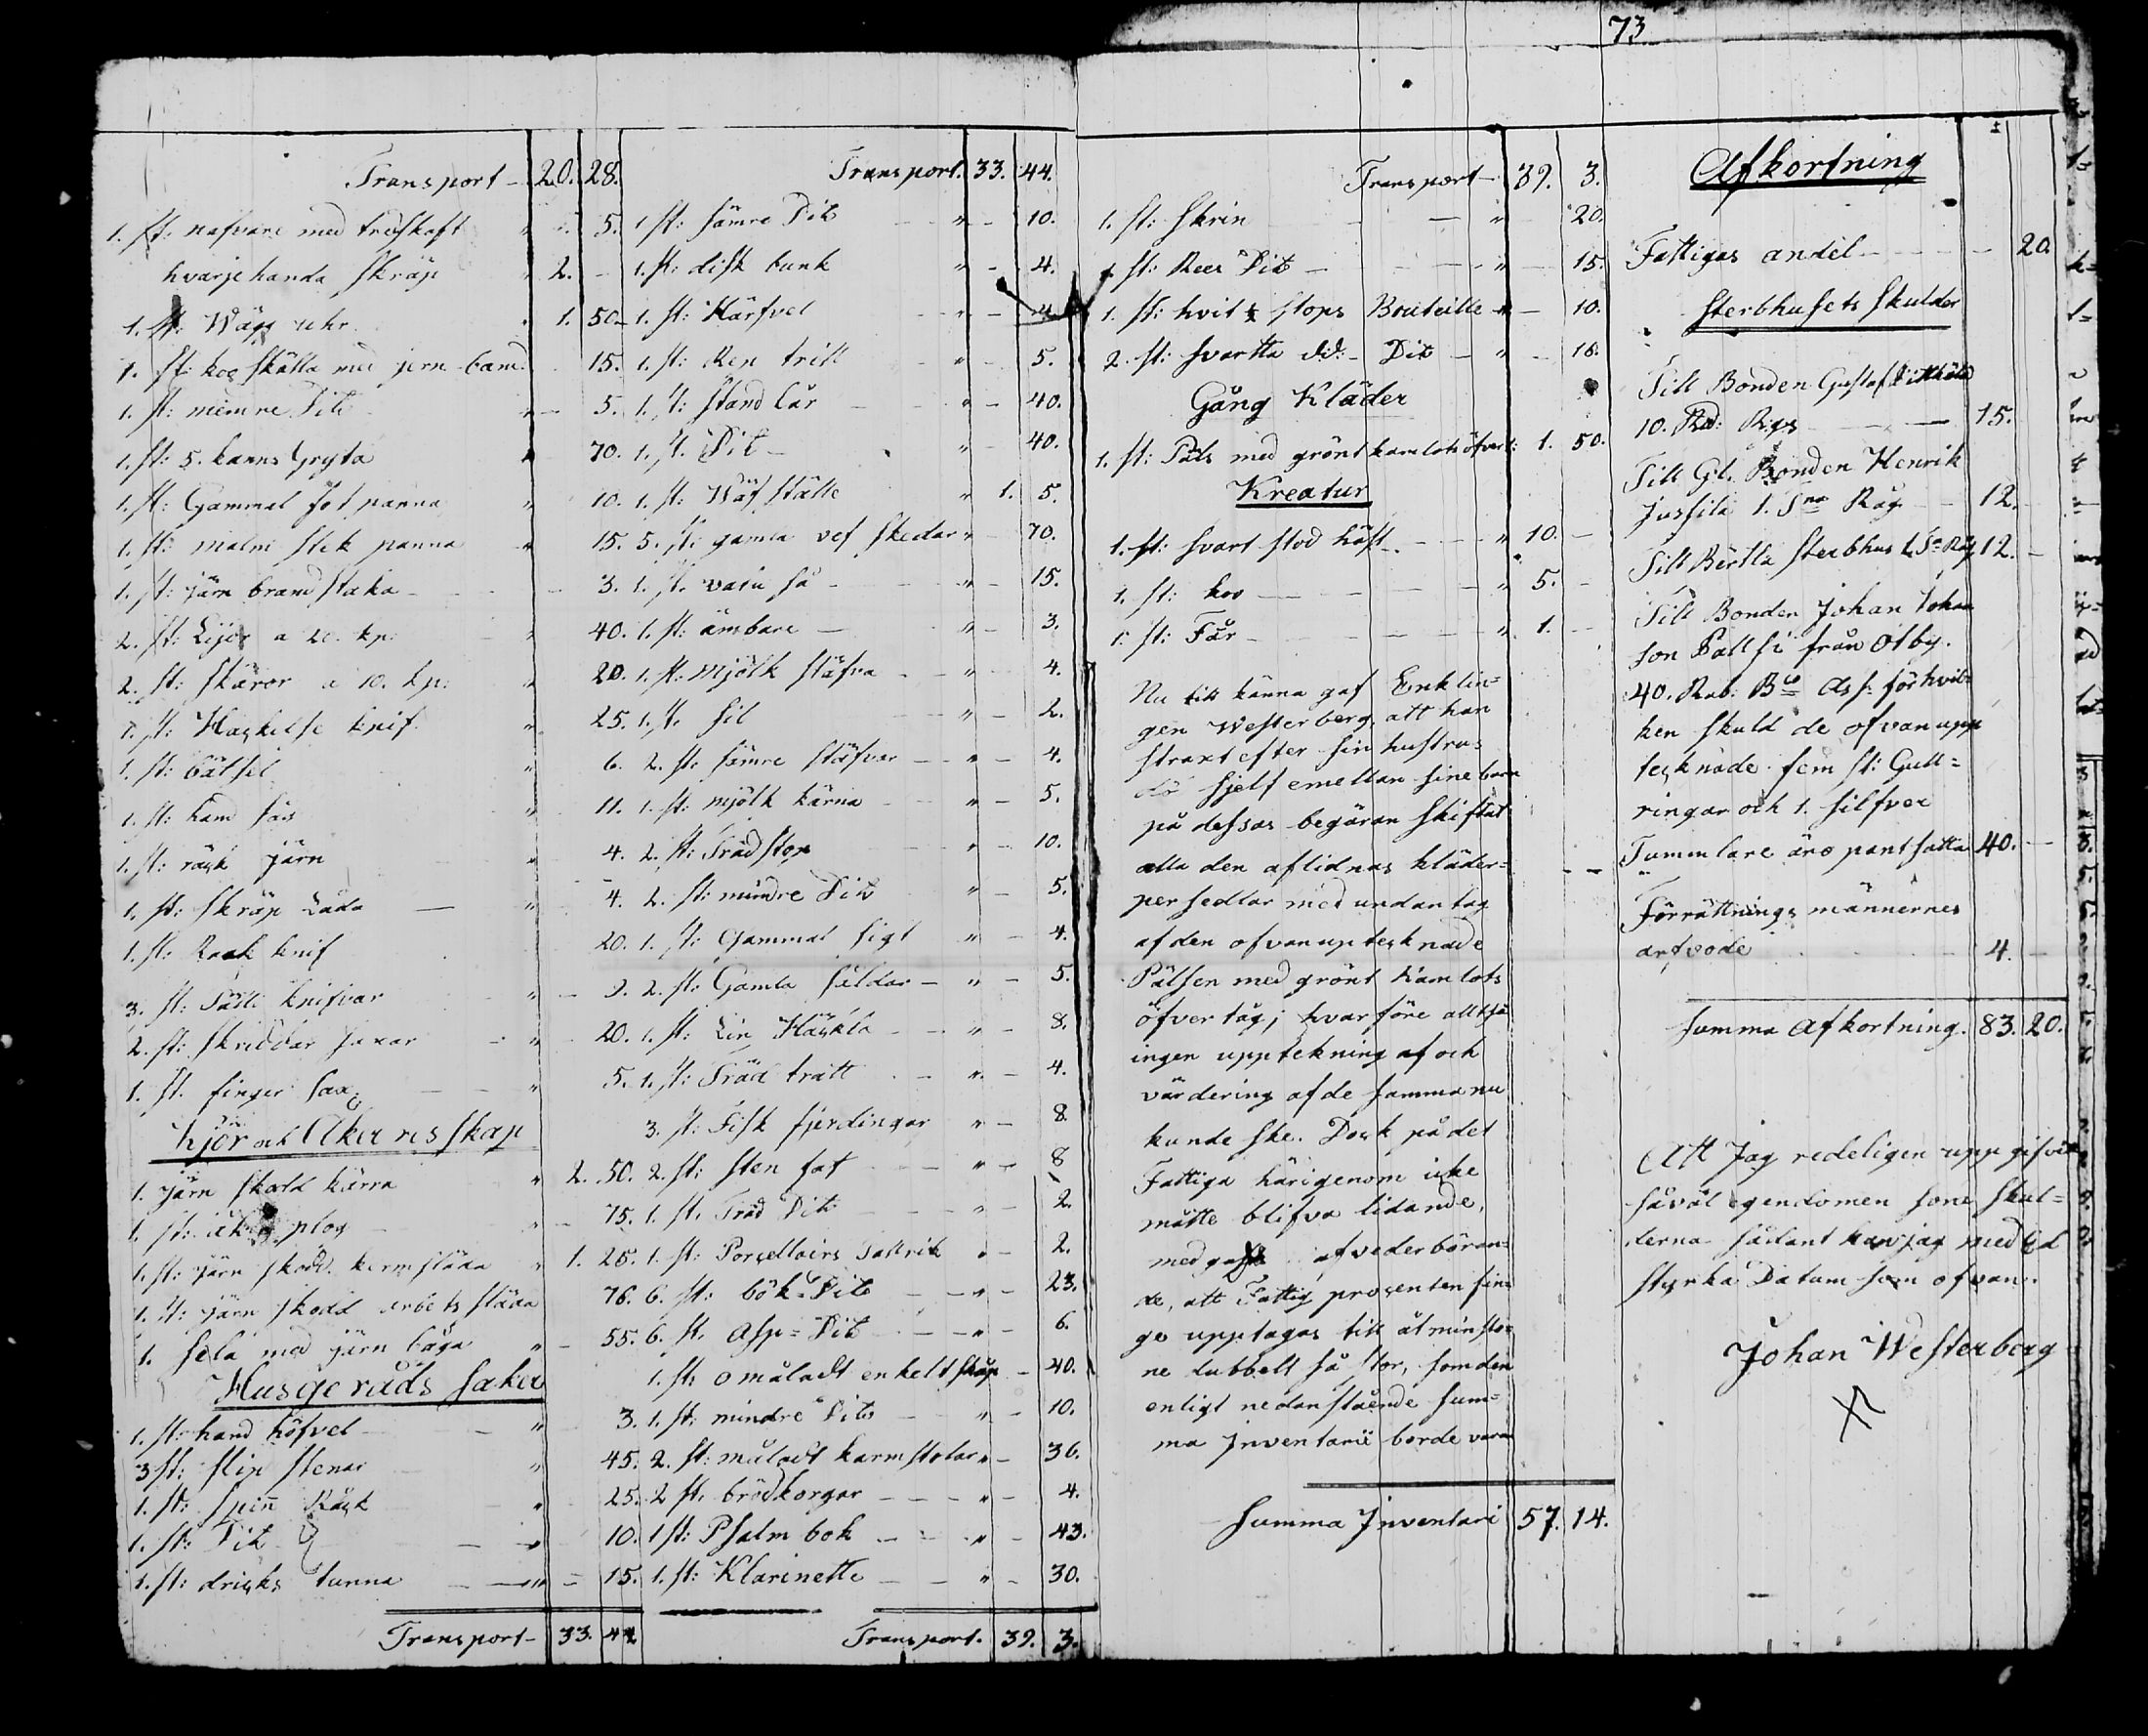 73
Transport - 20. 28.
1. st: nafvare med träskaft " - 5.
hvarjehanda skräp " 2. -
1. st: Wägg uhr " 1. 50.
1. st: hog skålla med jern band 15.
1. st: mindre Dito " - 5.
1. st: 5. kanns Gryta " 70.
1. st: Gammal fot panna " 10.
1. st: malm stek panna " 15.
1. st: järn brand staka - 3.
2. st: Lijor a 20. kp: " 40.
2. st: skäror a 10. kp: " 20.
1. st: Hackelse knif " 25.
1. st: bätsel " 6.
1. st: hand såg " 11.
1. st: räck järn " 4.
1. st: skräp Låda — " 4.
1. st: Raak knif 20.
3. st: Tälli knifvar " - 9.
2. st: skriddar saxar - " 20.
1. st. finger sax — " 5.
Kjör och Åker redskap
1. järn skodd kärra " 2. 50.
1. st: åker plog - " - 75.
1. st: järn skodd karmsläda " 1. 25.
1. st: järn skodd arbets släda 76.
1. sela med järn båga " - 55.
Husgeråds saker
1. st: hand höfvel - " 3.
3 st: slip stenar " 45.
1. st: spinn Råck " 25.
1. st: Dito " 10.
1. st: dricks tunna — " - 15.
Transport - 33. 44.
Transport. 33. 44.
1 st: sämre Dito " - 10.
1. st: disk bunk " - 4.
1. st: Härfvel " - 4
1. st: Ren trill " - 5.
1. st: stånd kår - " - 40.
1. st. Dito - " - 40.
1. st: Wäf ställe " 1. 5.
5. st: gamla vef skedar " - 70.
1. st. vatu så - " - 15.
1. st: ämbare — " - 3.
1. st: Mjölk stäfva " - 4.
1. st. sil " - 2.
2. st: sämre stäfvor - " - 4.
1. st: mjölk kärna - " - 5.
2. st: Träd stop " - 10.
2. st: mindre Dito " - 5.
1. st: Gammal sigt " - 4.
2. st: Gamla såldar - " - 5.
1. st: Lin Häckla - " - 8.
1. st: Träd tratt - " - 4.
3. st: Fisk fjerdingar " - 8.
2. st: sten fat - " - 8
1. st. Träd Dito - " - 2.
1. st: Porcellains Tallrik " - 2.
6. st: bök Dito — " - 23.
6. st. Asp = Dito - " - 6.
1. st. omåladt enkelt skåp - 40.
1. st: mindre Dito - " - 10.
2. st: måladt karmstolar " - 36.
2 st. brödkorgar - - " - 4.
1 st: Psalm bok - - " - 43.
1. st: Klarinette - - " - 30.
Transport. 39. 3.
Transport - 39. 3.
1. st: skrin - — " 20.
1. st: Rees Dito - — " - 15.
1. st: hvit stops Bouteille " - 10.
2. st: svartta did: - Dito - " - 16.
Gång Kläder
1. st: Päls med grönt kamlots öfvert: 1. 50.
Kreatur
1. st: svart stod häst - " 10. -
1. st: koo — " 5. -
1. st: Får - — " 1. -
Nu till känna gaf Enklin=
gen Westerberg att han
straxt efter sin hustrus
dö sjelf emellan sine barn
på dessas begäran skiftat
alla den aflidnas kläder=
persedlar med undantag
af den ofvanuptecknade
Pälsen med grönt Kamlots
öfvertåg; hvarföre alltså
ingen uppteckning af och
värdering af de samma nu
kunde ske. Dock på det
Fattiga härigenom icke
måtte blifva lidande,
medgafs af vederböran=
de, att Fattig procenten fin=
ge upptagas till åtminsto=
ne dubbelt så stor, som den
enligt nedanstående sum=
ma Inventarii borde vara
Summa Inventari 57. 14.
Afkortning
Fattigas andel - - - 20.
Sterbhusets skulder
Till Bonden Gustaf
10. Rub: Rgs — 15.
Till Gl. Bonden Henrik
Jussila 1. Tna Råg - 12.
Till Bertla sterbhus 1. Tna Råg 12. -
Till Bonden Johan Johan
son Pallsi från Otby.
40. Rub: Bco Ass: för hvil=
ken skuld de ofvanupp
tecknade fem st: Gull=
ringar och 1. silfver
Tummlare äro pantsatta 40. -
Förrättnings männernes
arfvode - 4. -
Summa Afkortning. 83. 20.
Att Jag redeligen uppgifvit
såväl egendomen som skul=
derna sådant kan jag med Ed
styrka Datum som ofvan.
Johan Westerberg